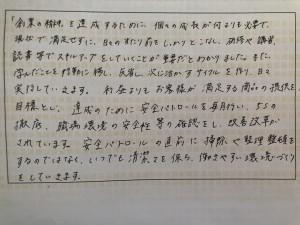 「企業の格続」を達成するために、個人の成長が何よりも必要で、
現状で満足せずに、日々のすたり前をしっかりとこなし、研修や講演、
読書等でスキルアップをしていくことが重要だとわかりました。また、
学んだことを行動に移し、反省し、次に活かすサイクルを作り、日々
実行していきます。私達よりお客様が満足する商品の提供を
目標とし、達成のために安全パトロールを毎月行い、5Sの
徹底、職場環境の安全性等の確認をし、改善改革が
されています。安全パトロールの直前に掃除や整理整頓を
するのではなく、いつでも清潔さを保ち、働きやすい環境づくり
をしていきます。